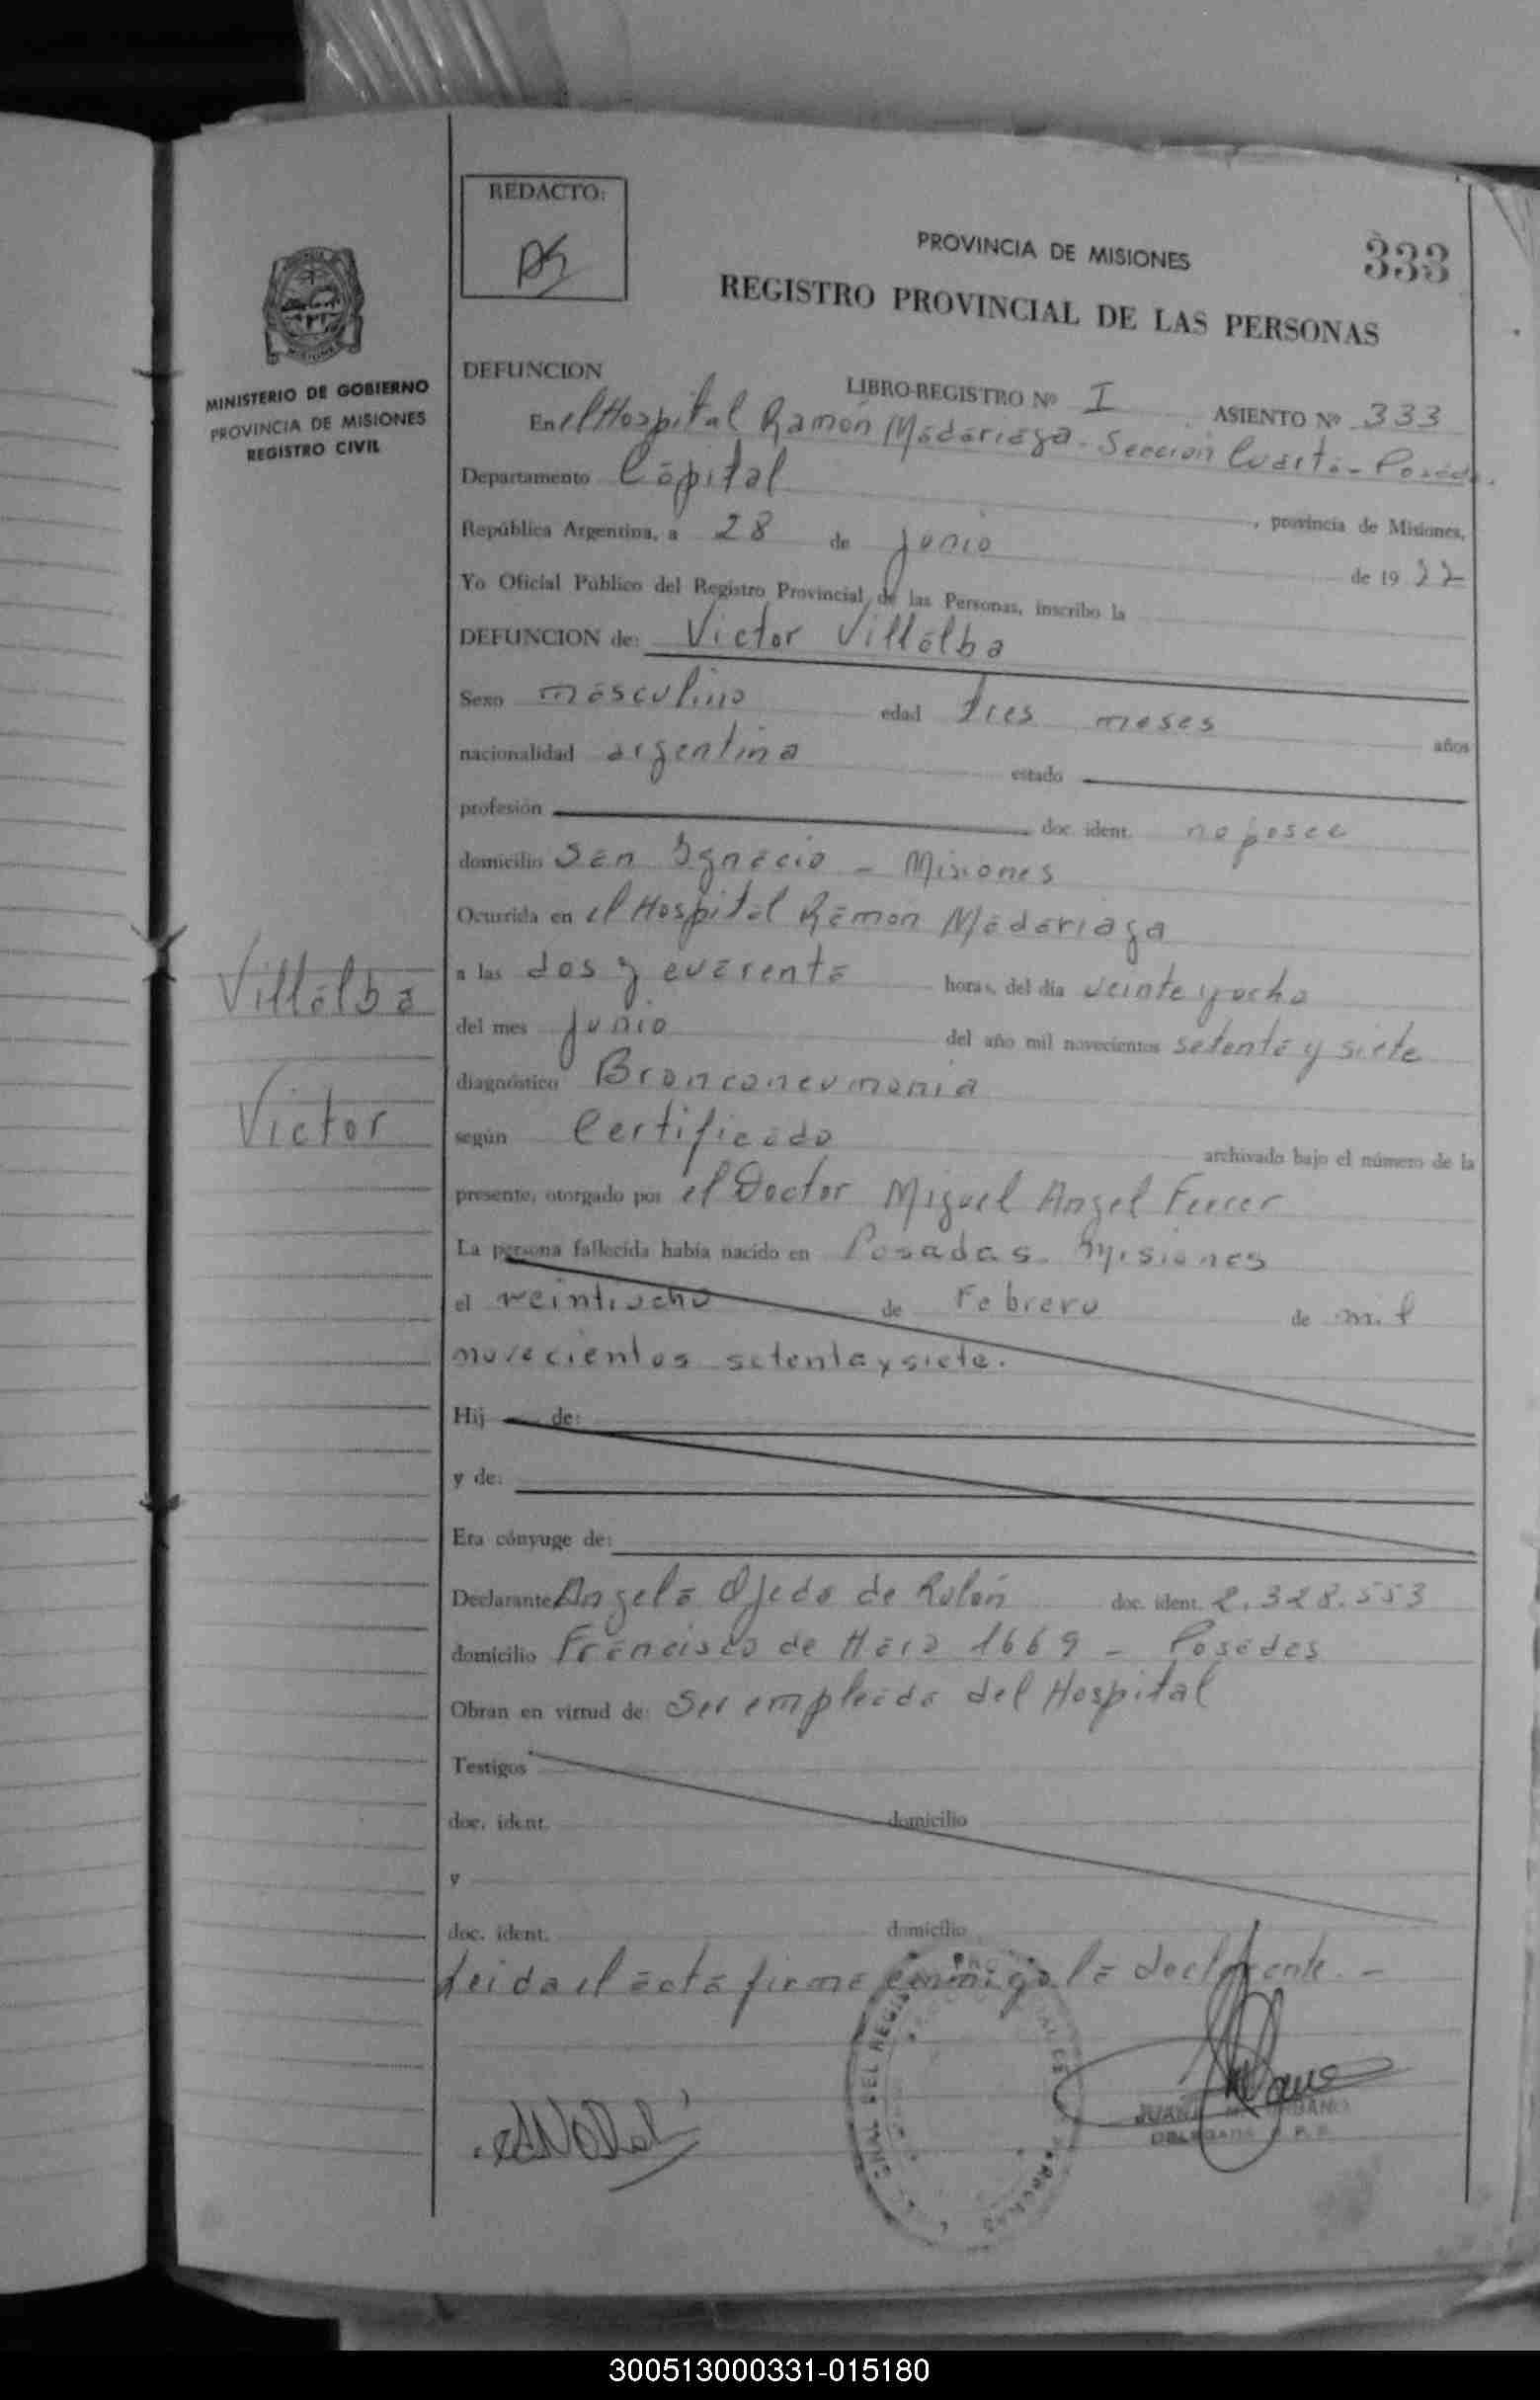 REDACTO:
PROVINCIA DE MISIONES
333
REGISTRO PROVINCIAL DE LAS PERSONAS
MINISTERIO DE GOBIERNO
PROVINCIA DE MISIONES
REGISTRO CIVIL
DEFUNCION
LIBRO-REGISTRO Nº I ASIENTO Nº 333
En el Hospital Ramón Madariaga - Sección Cuarta - Posadas
Departamento Capital, provincia de Misiones,
República Argentina, a 28 de junio de 1977
Yo Oficial Público del Registro Provincial de las Personas, inscribo la
DEFUNCION de: Victor Villalba
Sexo masculino edad tres meses años
nacionalidad argentina estado
profesión doc. ident. no posee
domicilio San Ignacio - Misiones
Ocurrida en el Hospital Ramon Madariaga
a las dos y cuarenta horas, del día veinte y ocho
del mes junio del año mil novecientos setenta y siete
Villalba
diagnóstico Bronconeumonia
Victor
según Certificado archivado bajo el número de la
presente, otorgado por el Doctor Miguel Angel Ferrer
La persona fallecida había nacido en Posadas. Misiones
el veintiocho de Febrero de mil
novecientos setenta y siete.
Hij de:
y de:
Era cónyuge de:
Declarante Angela Ojeda de Rolón doc. ident. 2.328.553
domicilio Francisco de Haro 1669 - Posadas
Obran en virtud de: Ser empleada del Hospital
Testigos
doc. ident. domicilio
y
doc. ident. domicilio
Leida el acta firma conmigo la declarante. -
300513000331-015180